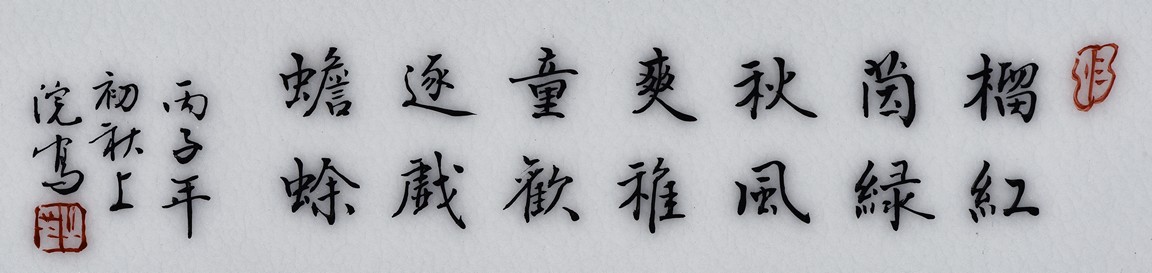 榴紅
茵緑
秋風
爽稚
童歡
逐戲
蟾蜍
丙子年
初秋上
浣寫